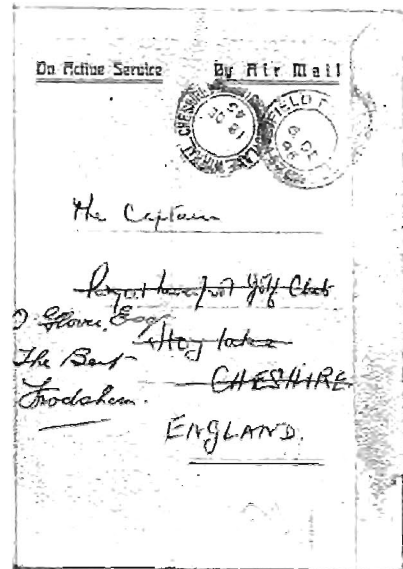 On Active Service By Air Mail
FIELD
The Captain
Royal Liverpool Golf Club
J Glover, Esq
Hoylake
The Bent
CHESHIRE
Frodsham.
ENGLAND.